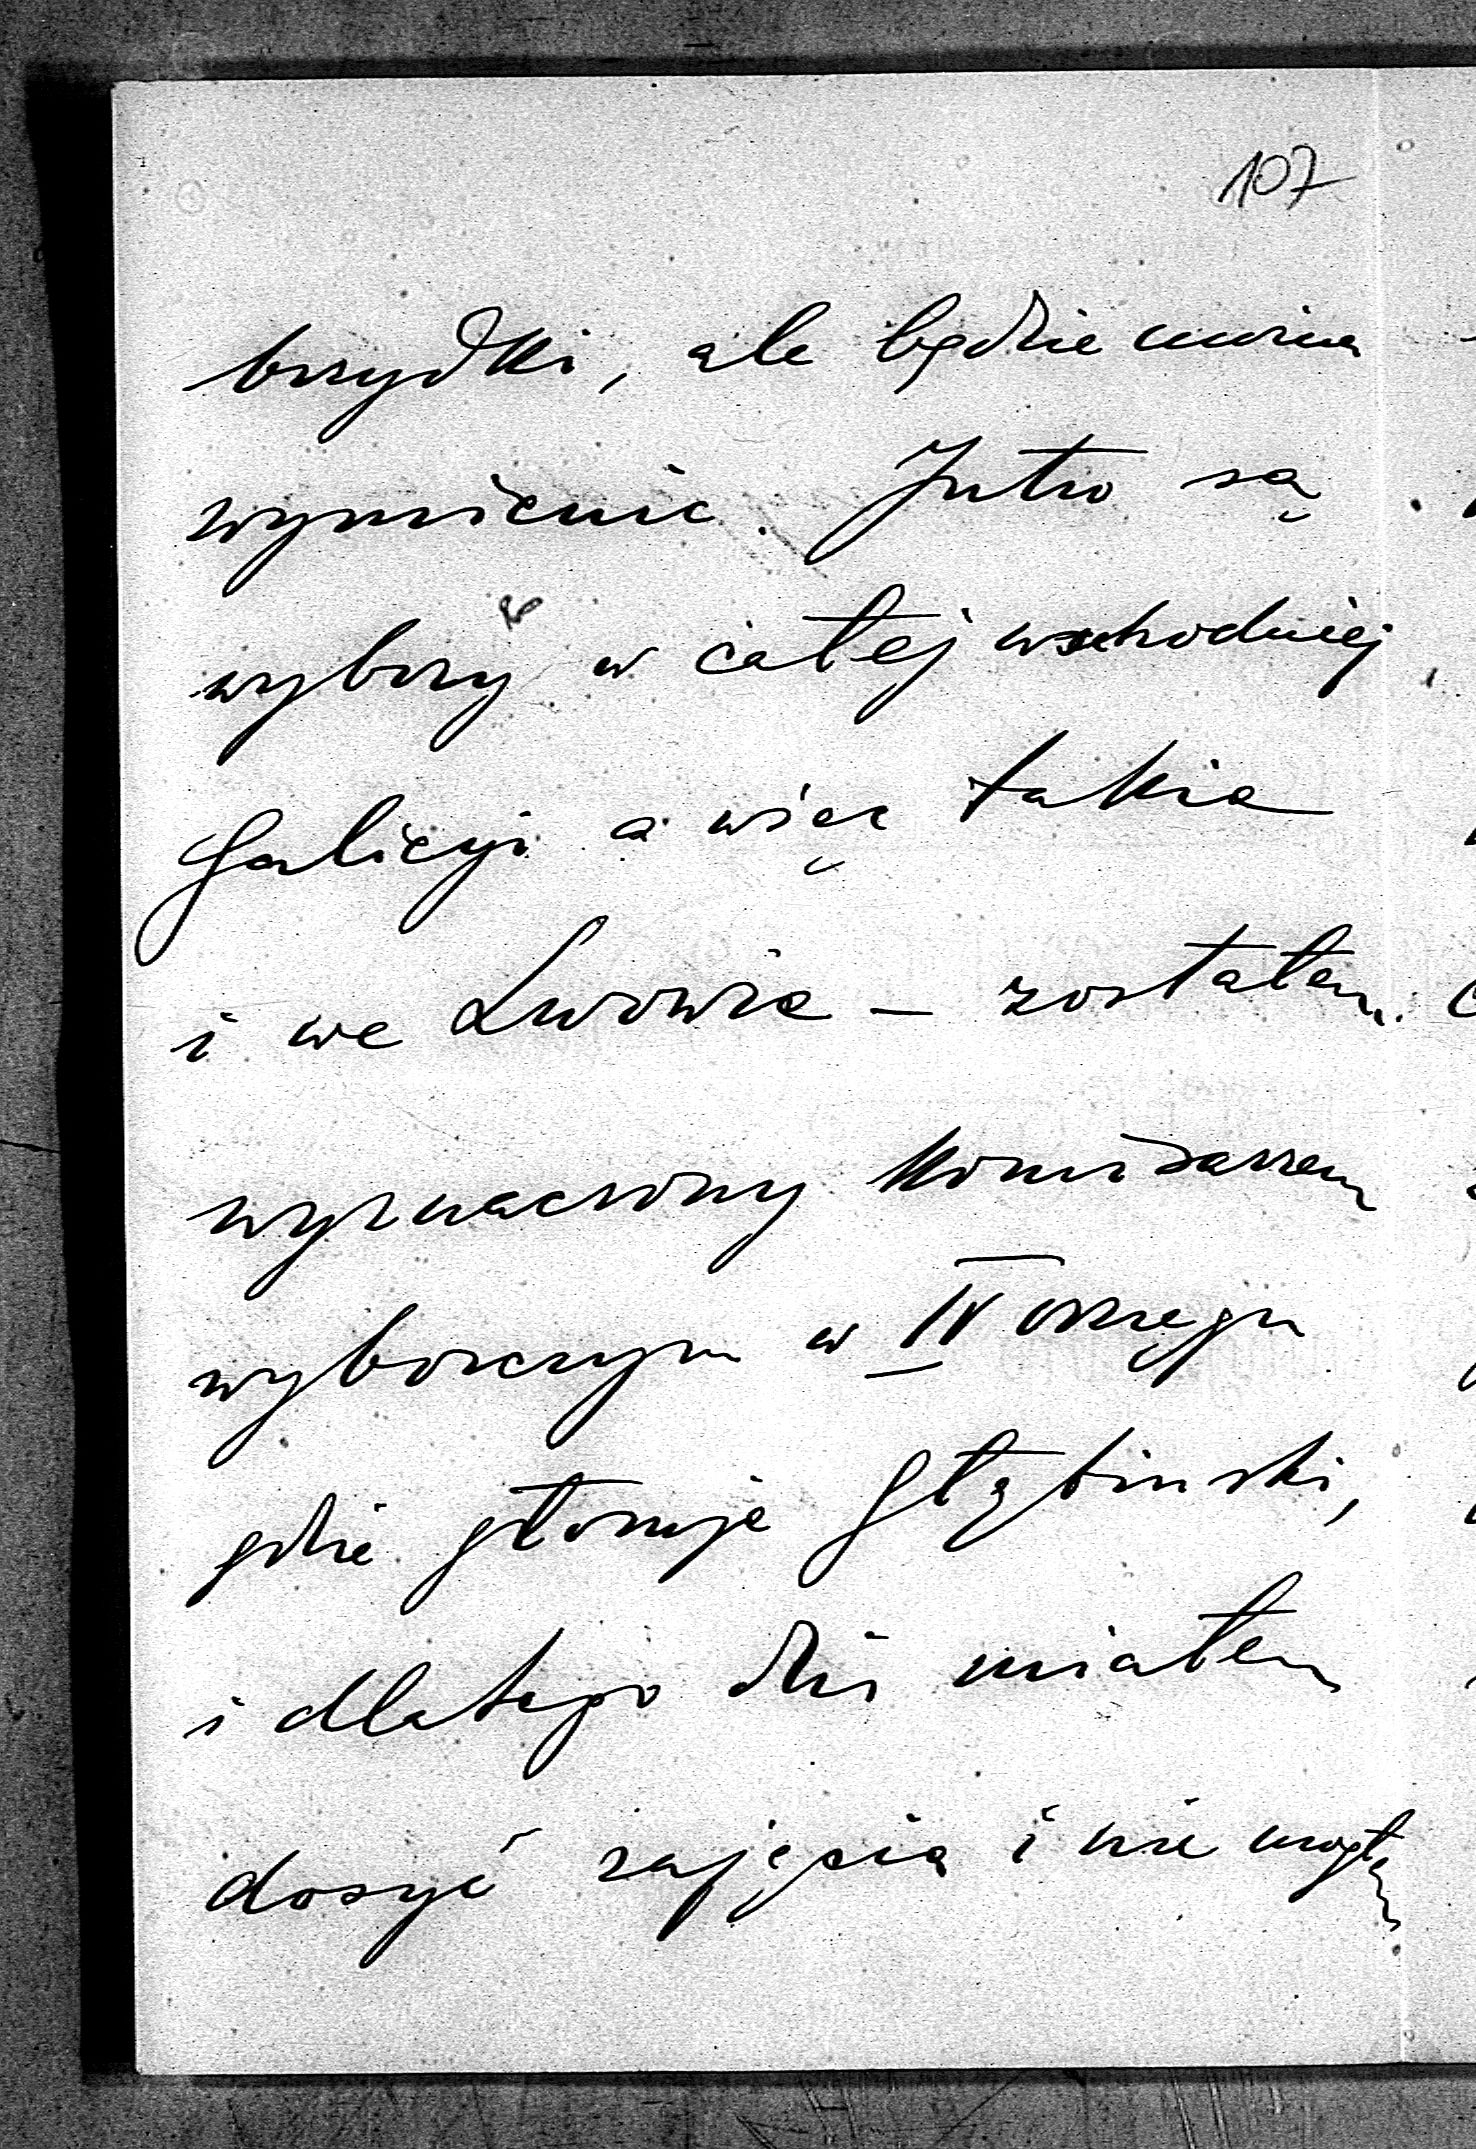 107
brzydki, ale będzie można
wymienić. Jutro są
wybory w całej wschodniej
Galicyi a więc także
i we Lwowie – zostałem
wyznaczony komisarzem
wyborczym w IV okręgu
gdzie głosuje Głąbinski,
i dlatego dziś miałem
dosyć zajęcia i nie mogłem